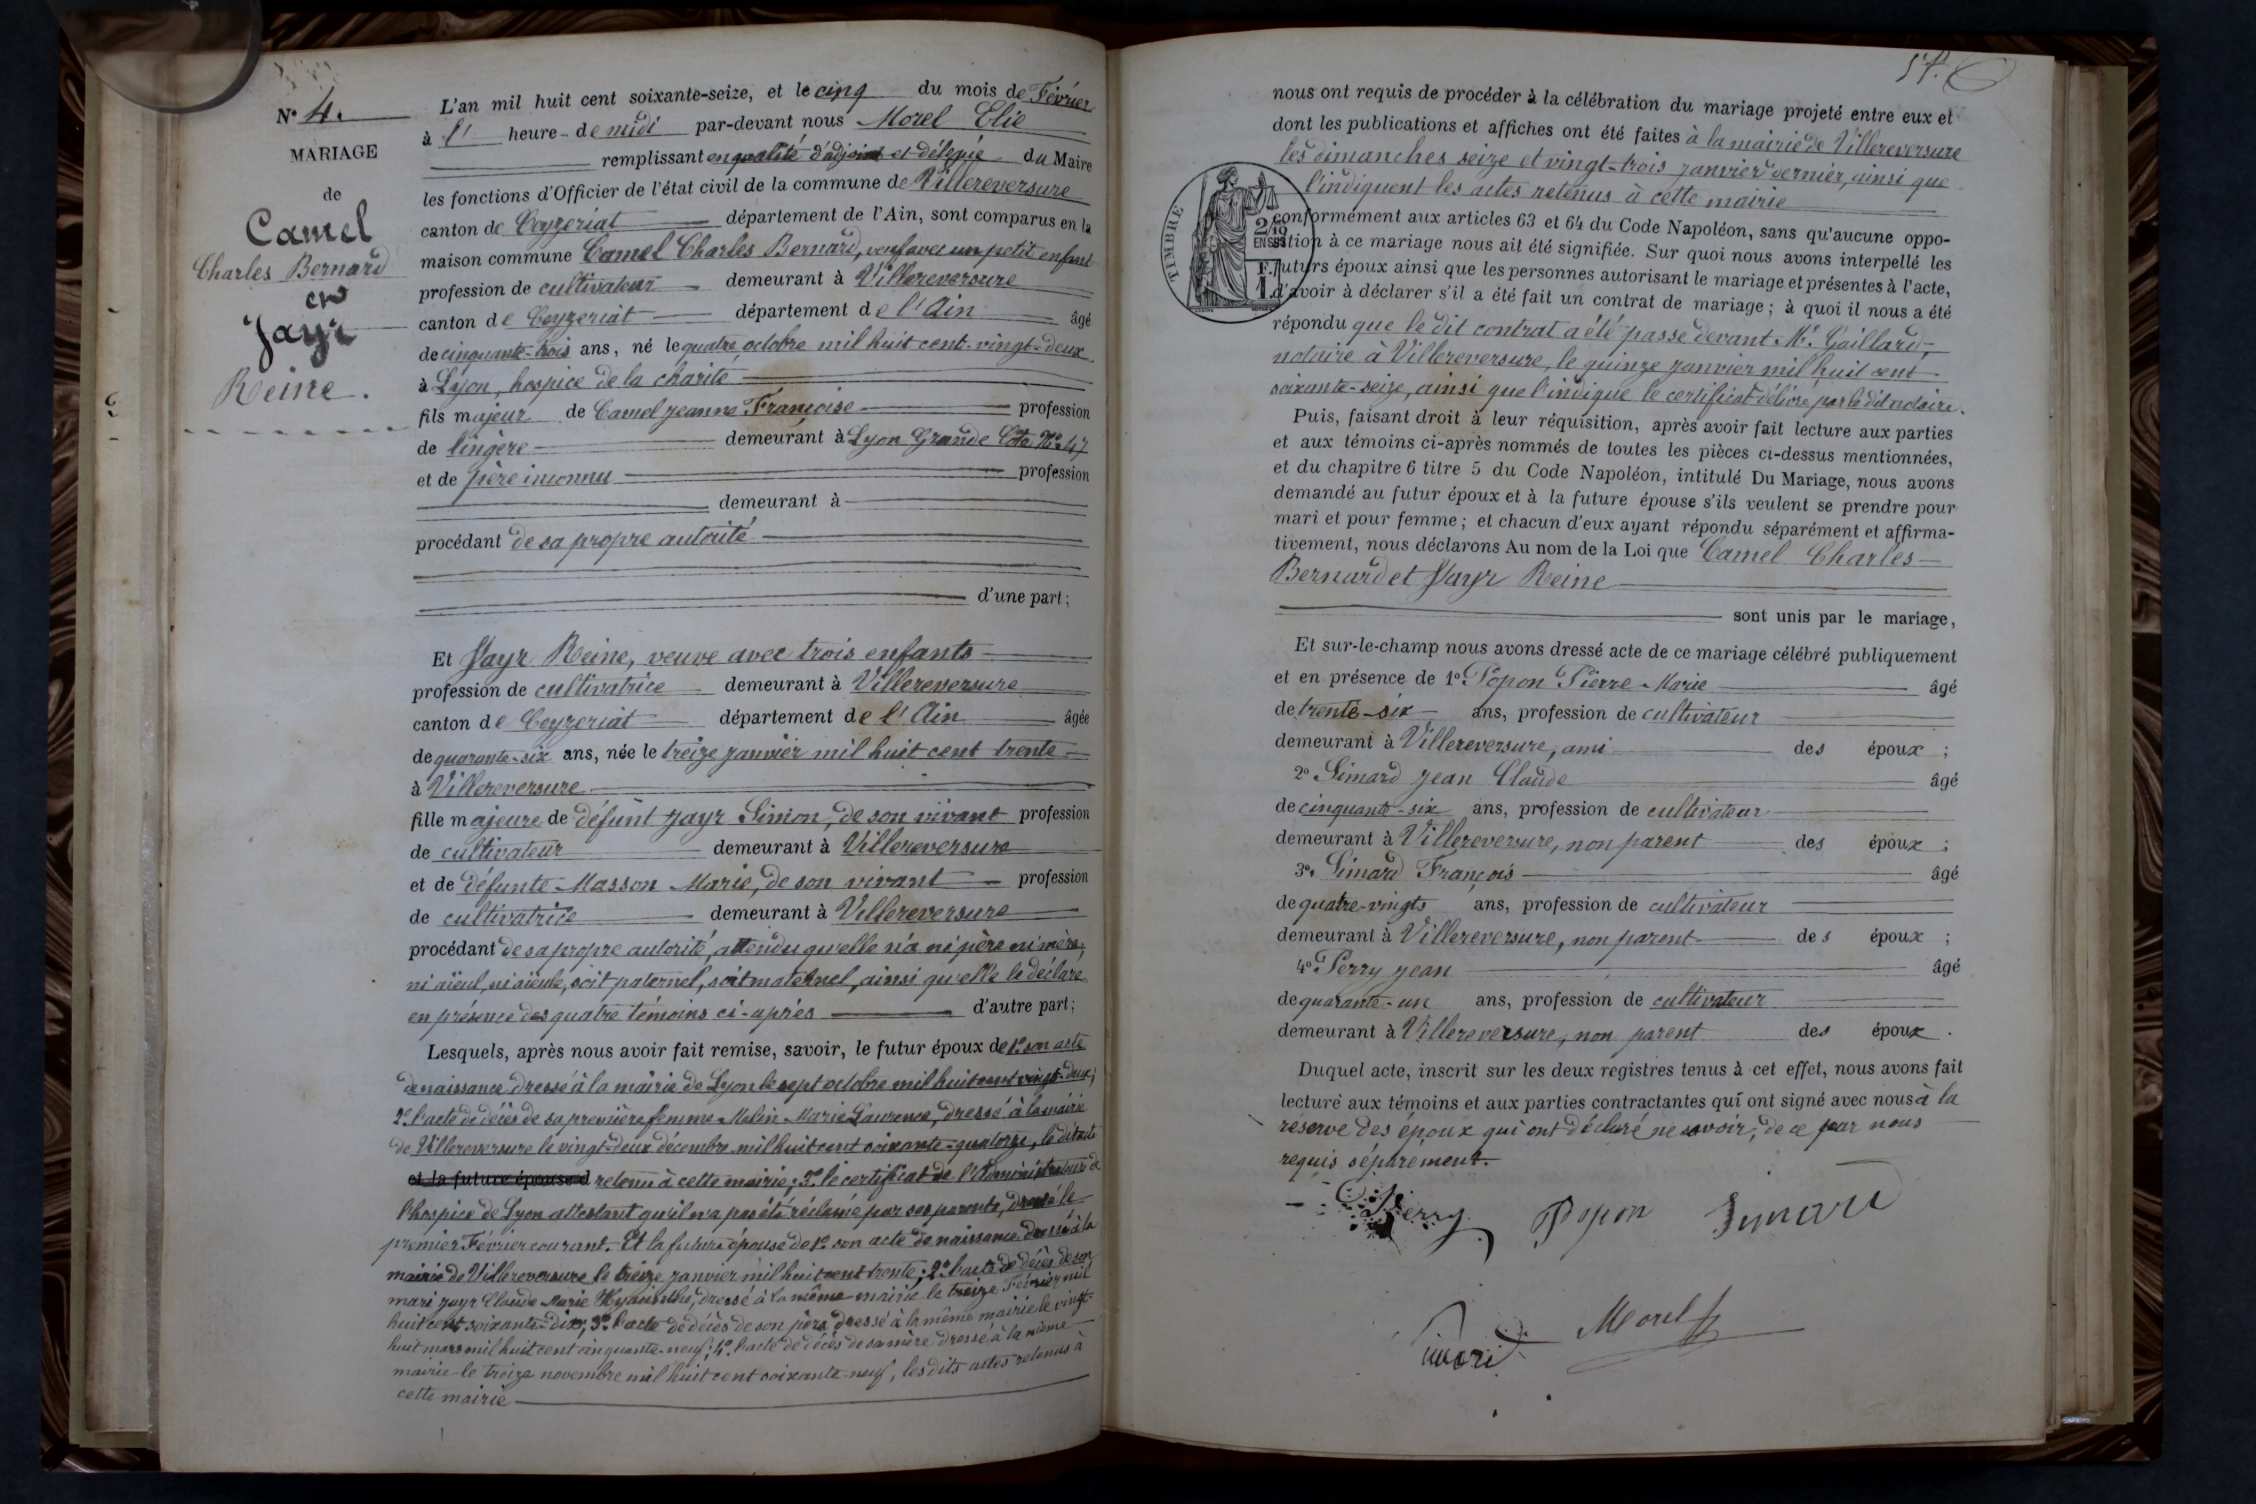 N° 4.
MARIAGE
de
Camel
Charles Bernard
et
Jayr
Reine.
L'an mil huit cent soixante-seize, et le cinq du mois de Février
à l' heure de midi par-devant nous Morel Elie
remplissant en qualité d'adjoint et délégué du Maire
les fonctions d'Officier de l'état civil de la commune de Villereversure
canton de Ceyzeriat département de l'Ain, sont comparus en la
maison commune Camel Charles Bernard, veuf avec un petit enfant
profession de cultivateur demeurant à Villereversure
canton de Ceyzeriat département de l'Ain âgé
de cinquante-trois ans, né le quatre octobre mil huit cent-vingt-deux
à Lyon, hospice de la charité
fils majeur de Camel Jeanne Françoise profession
de lingère demeurant à Lyon Grande Côte N° 47
et de père inconnu profession
demeurant à
procédant de sa propre autorité
d'une part;
Et Jayr Reine, veuve avec trois enfants
profession de cultivatrice demeurant à Villereversure
canton de Ceyzeriat département de l'Ain âgée
de quarante-six ans, née le treize janvier mil huit cent trente
à Villereversure
fille majeure de défunt Jayr Simon, de son vivant profession
de cultivateur demeurant à Villereversure
et de défunte Masson Marie, de son vivant profession
de cultivatrice demeurant à Villereversure
procédant de sa propre autorité, attendu qu'elle n'a ni père ni mère,
ni aïeul, ni aïeule, soit paternel, soit maternel, ainsi qu'elle le déclare
en présence des quatre témoins ci-après d'autre part;
Lesquels, après nous avoir fait remise, savoir, le futur époux de 1° son acte
de naissance dressé à la mairie de Lyon le sept octobre mil huit cent vingt-deux;
2° l'acte de décès de sa première femme Marie Laurence, dressé à la mairie
de Villereversure le vingt-deux décembre mil huit cent soixante-quatorze, le dit acte
et la future épouse d retenu à cette mairie; 3° le certificat de l'Administrateur de
l'hospice de Lyon attestant qu'il n'a pas été réclamé par ses parents, dressé le
premier Février courant. Et la future épouse de 1° son acte de naissance dressé à la
mairie de Villereversure le treize janvier mil huit cent trente; 2° l'acte de décès de son
mari Jayr Claude Marie Hyacinthe, dressé à la même mairie le treize Février mil
huit cent soixante-dix; 3° l'acte de décès de son père dressé à la même mairie le vingt-
huit mars mil huit cent cinquante-neuf; 4° l'acte de décès de sa mère dressé à la même
mairie le treize novembre mil huit cent soixante-neuf, les dits actes retenus à
cette mairie
nous ont requis de procéder à la célébration du mariage projeté entre eux et
dont les publications et affiches ont été faites à la mairie de Villereversure
les dimanches seize et vingt-trois janvier dernier, ainsi que
l'indiquent les actes retenus à cette mairie
TIMBRE
2/10
EN SUS
F.
1.
conformément aux articles 63 et 64 du Code Napoléon, sans qu'aucune oppo-
sition à ce mariage nous ait été signifiée. Sur quoi nous avons interpellé les
futurs époux ainsi que les personnes autorisant le mariage et présentes à l'acte,
d'avoir à déclarer s'il a été fait un contrat de mariage; à quoi il nous a été
répondu que le dit contrat a été passé devant Mr. Gaillard,
notaire à Villereversure, le quinze janvier mil huit cent
soixante-seize, ainsi que l'indique le certificat délivré par le dit notaire.
Puis, faisant droit à leur réquisition, après avoir fait lecture aux parties
et aux témoins ci-après nommés de toutes les pièces ci-dessus mentionnées,
et du chapitre 6 titre 5 du Code Napoléon, intitulé Du Mariage, nous avons
demandé au futur époux et à la future épouse s'ils veulent se prendre pour
mari et pour femme; et chacun d'eux ayant répondu séparément et affirma-
tivement, nous déclarons Au nom de la Loi que Camel Charles
Bernard et Jayr Reine
sont unis par le mariage,
Et sur-le-champ nous avons dressé acte de ce mariage célébré publiquement
et en présence de 1° Popon Pierre-Marie âgé
de trente-six ans, profession de cultivateur
demeurant à Villereversure, ami des époux;
2° Simard Jean Claude âgé
de cinquante-six ans, profession de cultivateur
demeurant à Villereversure, non parent des époux;
3° Simard François âgé
de quatre-vingts ans, profession de cultivateur
demeurant à Villereversure, non parent des époux;
4° Perry Jean âgé
de quarante-un ans, profession de cultivateur
demeurant à Villereversure, non parent des époux.
Duquel acte, inscrit sur les deux registres tenus à cet effet, nous avons fait
lecture aux témoins et aux parties contractantes qui ont signé avec nous à la
réserve des époux qui ont déclaré ne savoir, de ce par nous
requis séparément.
Perry Popon Simard
Simard Morel